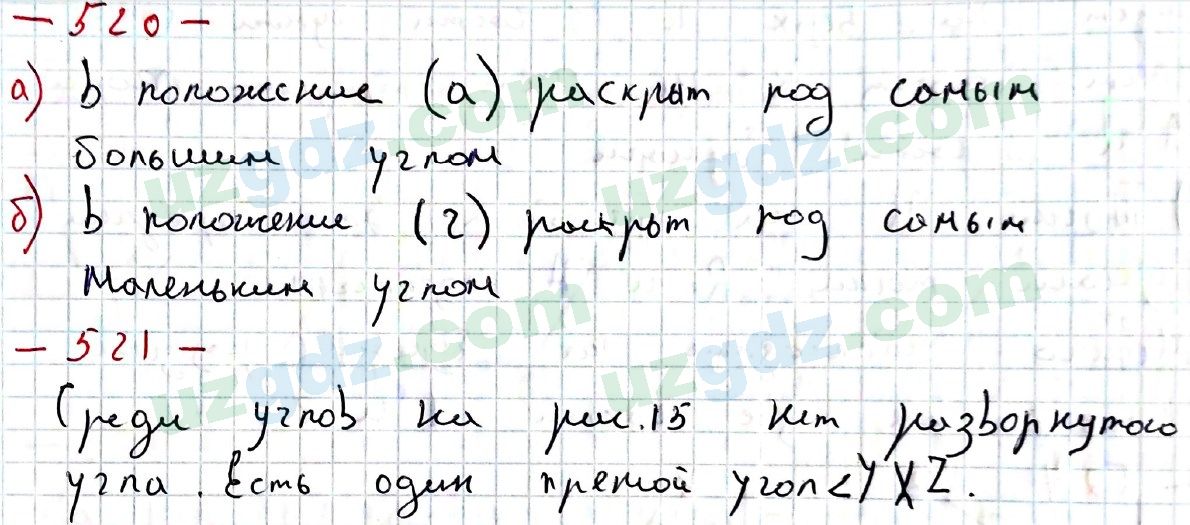 - 520 -
а) в положение (а) раскрыт под самым
большим углом
б) в положение (г) раскрыт под самым
маленьким углом
- 521 -
Среди углов на рис. 15 нет разворнутого
угла. Есть один прямой угол <YXZ.
uzgdz.com
uzgdz.com
uzgdz.com
uzgdz.com